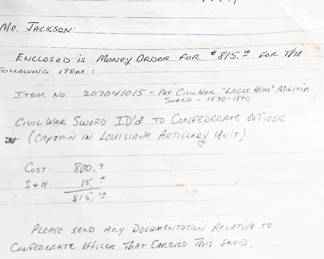 Mr. Jackson:
Enclosed is Money Order for $815.00 for the
following item:
Item No. 207041015 - Pre Civil War "Eagle Head" Militia
Sword - 1830-1840
Civil War Sword ID'd to Confederate Officer
(Captain in Louisiana Artillery Unit)
Cost: 800.00
S+H 15.00
815.00
Please send any documentation relative to
Confederate officer that carried this sword.